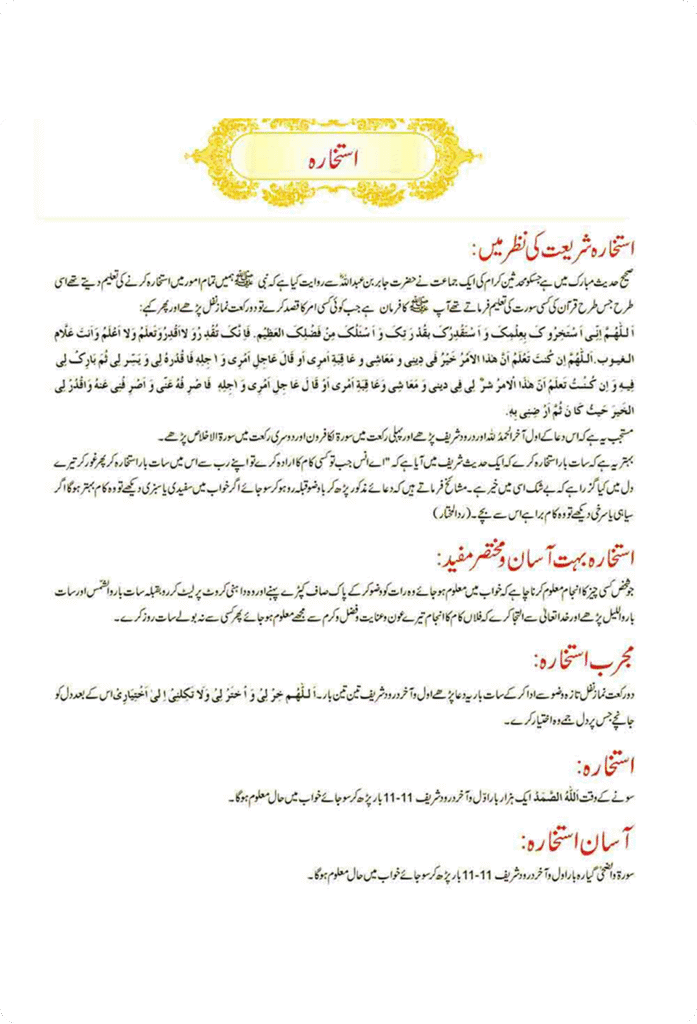 استخارہ
استخارہ شریعت کی نظر میں:
صحیح حدیث مبارک میں ہے جسکو محدثین کرام کی ایک جماعت نے حضرت جابر بن عبداللہؓ سے روایت کیا ہے کہ نبی ﷺ ہمیں تمام امور میں استخارہ کرنے کی تعلیم دیتے تھے اسی
طرح جس طرح قرآن کی کسی سورت کی تعلیم فرماتے تھے آپ ﷺ کا فرمان ہے جب کوئی کسی امر کا قصد کرے تو دو رکعت نماز نفل پڑھے اور پھر کہے:
اَللّٰهُمَّ اِنِّی اَسْتَخِیْرُوکَ بِعِلْمِکَ وَ اَسْتَقْدِرُکَ بِقُدْرَتِکَ وَ اَسْئَلُکَ مِنْ فَضْلِکَ الْعَظِیْمِ. فَاِنَّکَ تَقْدِرُ وَلَا اَقْدِرُ وَتَعْلَمُ وَلَا اَعْلَمُ وَاَنْتَ عَلَّامُ
الْغُیُوب. اَللّٰهُمَّ اِن کُنتَ تَعْلَمُ اَنَّ هٰذَا الْاَمْرَ خَیْرٌ فِی دِیْنِی وَ مَعَاشِی وَ عَاقِبَةِ اَمرِی اَو قَالَ عَاجِلِ اَمْرِی وَ اٰجِلِهٖ فَاقْدُرهُ لِی وَ یَسِّر لِی ثُمَّ بَارِکْ لِی
فِیهِ وَ اِن کُنْتُ تَعلَمُ اَنَّ هٰذَا الْاَمرَ شَرٌّ لِی فِی دِینِی وَ مَعَاشِی وَ عَاقِبَةِ اَمْرِی اَوْ قَالَ عَاجِلِ اَمْرِی وَ اٰجِلِهٖ فَاصْرِفْهُ عَنِّی وَ اَصْرِ فْنِی عَنْهُ وَاقْدُرْ لِی
الْخَیرَ حَیثُ کَانَ ثُمَّ اَرْضِنِی بِهِ.
مستحب یہ ہے کہ اس دعا کے اول آخر الحمدُ للہ اور درود شریف پڑھے اور پہلی رکعت میں سورۃ لکافرون اور دوسری رکعت میں سورۃ الاخلاص پڑھے۔
بہتر یہ ہے کہ سات بار استخارہ کرے کہ ایک حدیث شریف میں آیا ہے کہ "اے انس جب تو کسی کام کا ارادہ کرے تو اپنے رب سے اس میں سات بار استخارہ کر پھر غور کر تیرے
دل میں کیا گزرا ہے کہ بے شک اسی میں خیر ہے۔ مشائخ فرماتے ہیں کہ دعائے مذکور پڑھ کر باوضو قبلہ رو ہو کر سو جائے اگر خواب میں سفیدی یا سبزی دیکھے تو وہ کام بہتر ہوگا اگر
سیاہی یا سرخی دیکھے تو وہ کام برا ہے اس سے بچے۔ (ردالمختار)
استخارہ بہت آسان و مختصر مفید:
جو شخص کسی چیز کا انجام معلوم کرنا چاہے کہ خواب میں معلوم ہو جائے وہ رات کو وضو کر کے پاک صاف کپڑے پہنے اور وہ داہنی کروٹ پر لیٹ کر رو بقبلہ سات بار والشمس اور سات
بار واللیل پڑھے اور خدا تعالیٰ سے التجا کرے کہ فلاں کام کا انجام تیرے عون و عنایت و فضل و کرم سے مجھے معلوم ہو جائے پھر کسی سے نہ بولے سات روز کرے۔
مجرب استخارہ:
دو رکعت نماز نفل تازہ وضو سے ادا کر کے سات بار یہ دعا پڑھے اول و آخر درود شریف تین تین بار۔ اَللّٰهُمَ خِرْ لِیْ وَ اْ ختَرْ لِیْ وَلَا تَکِلْنِیْ اِلیٰ اَخْتِیَارِیْ اس کے بعد دل کو
جانچے جس پر دل جمے وہ اختیار کرے۔
استخارہ:
سونے کے وقت اَللّٰهُ الصَّمَدُ ایک ہزار بار اوّل و آخر درود شریف 11-11 بار پڑھ کر سو جائے خواب میں حال معلوم ہوگا۔
آسان استخارہ:
سورۃ والضحٰی گیارہ بار اول و آخر درود شریف 11-11 بار پڑھ کر سو جائے خواب میں حال معلوم ہوگا۔